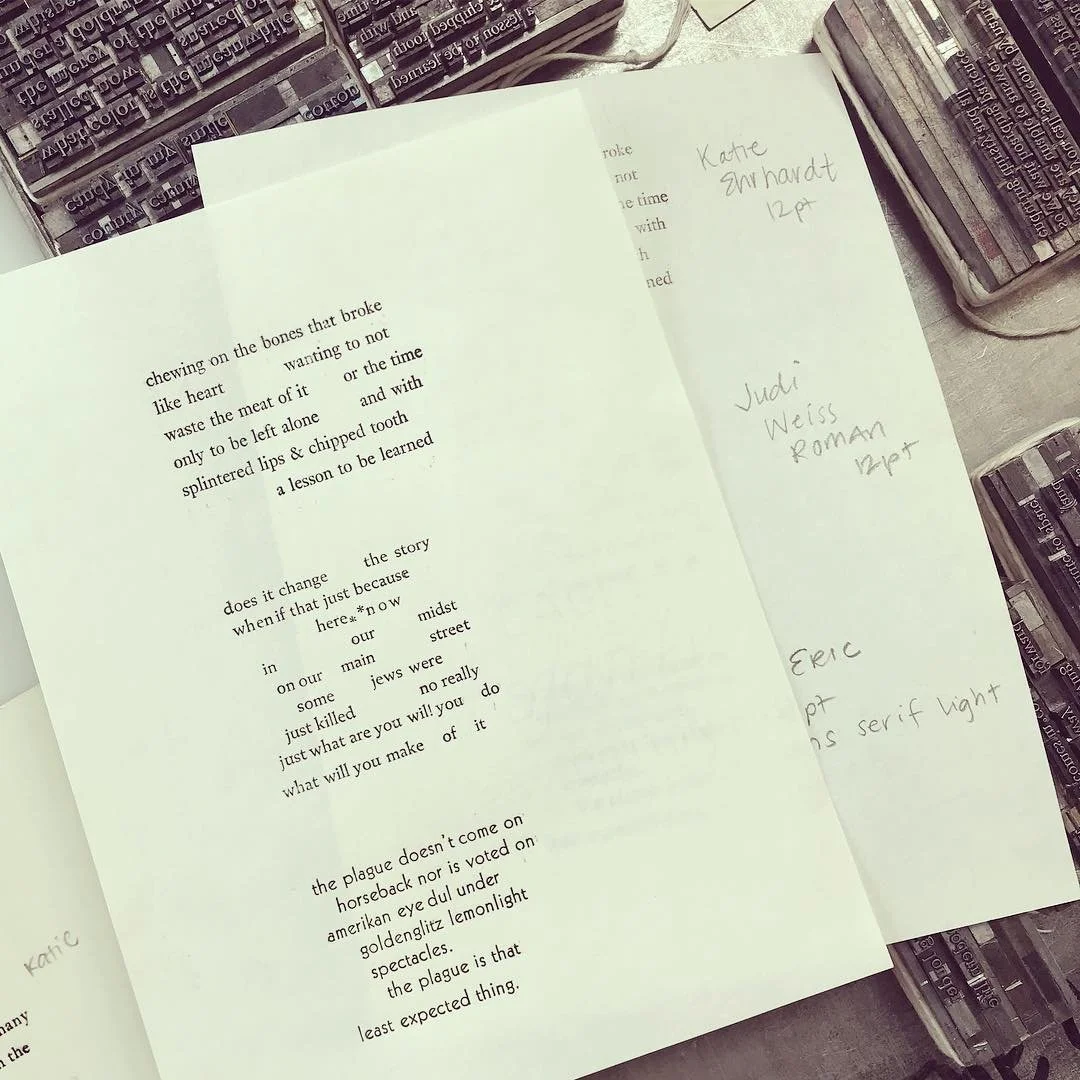 the mercy of the
snared in
stalled now
what color's the meanwhile
candy in my smile
county
cotton
and with
chipped tooth
a lesson to be learned
chewing on the bones that broke
like heart wanting to not
waste the meat of it or the time
only to be left alone and with
splintered lips & chipped tooth
a lesson to be learned
does it change the story
when if that just because
here**now
in our midst
on our main street
some jews were
just killed no really
just what are you wil! you do
what will you make of it
the plague doesn't come on
horseback nor is voted on
amerikan eye dul under
goldenglitz lemonlight
spectacles.
the plague is that
least expected thing.
roke
not
ne time
with
h
ned
Katie
Ehrhardt
12pt
Judi
Weiss
Roman
12pt
ERIC
pt
ns serif light
Katie
many
n the